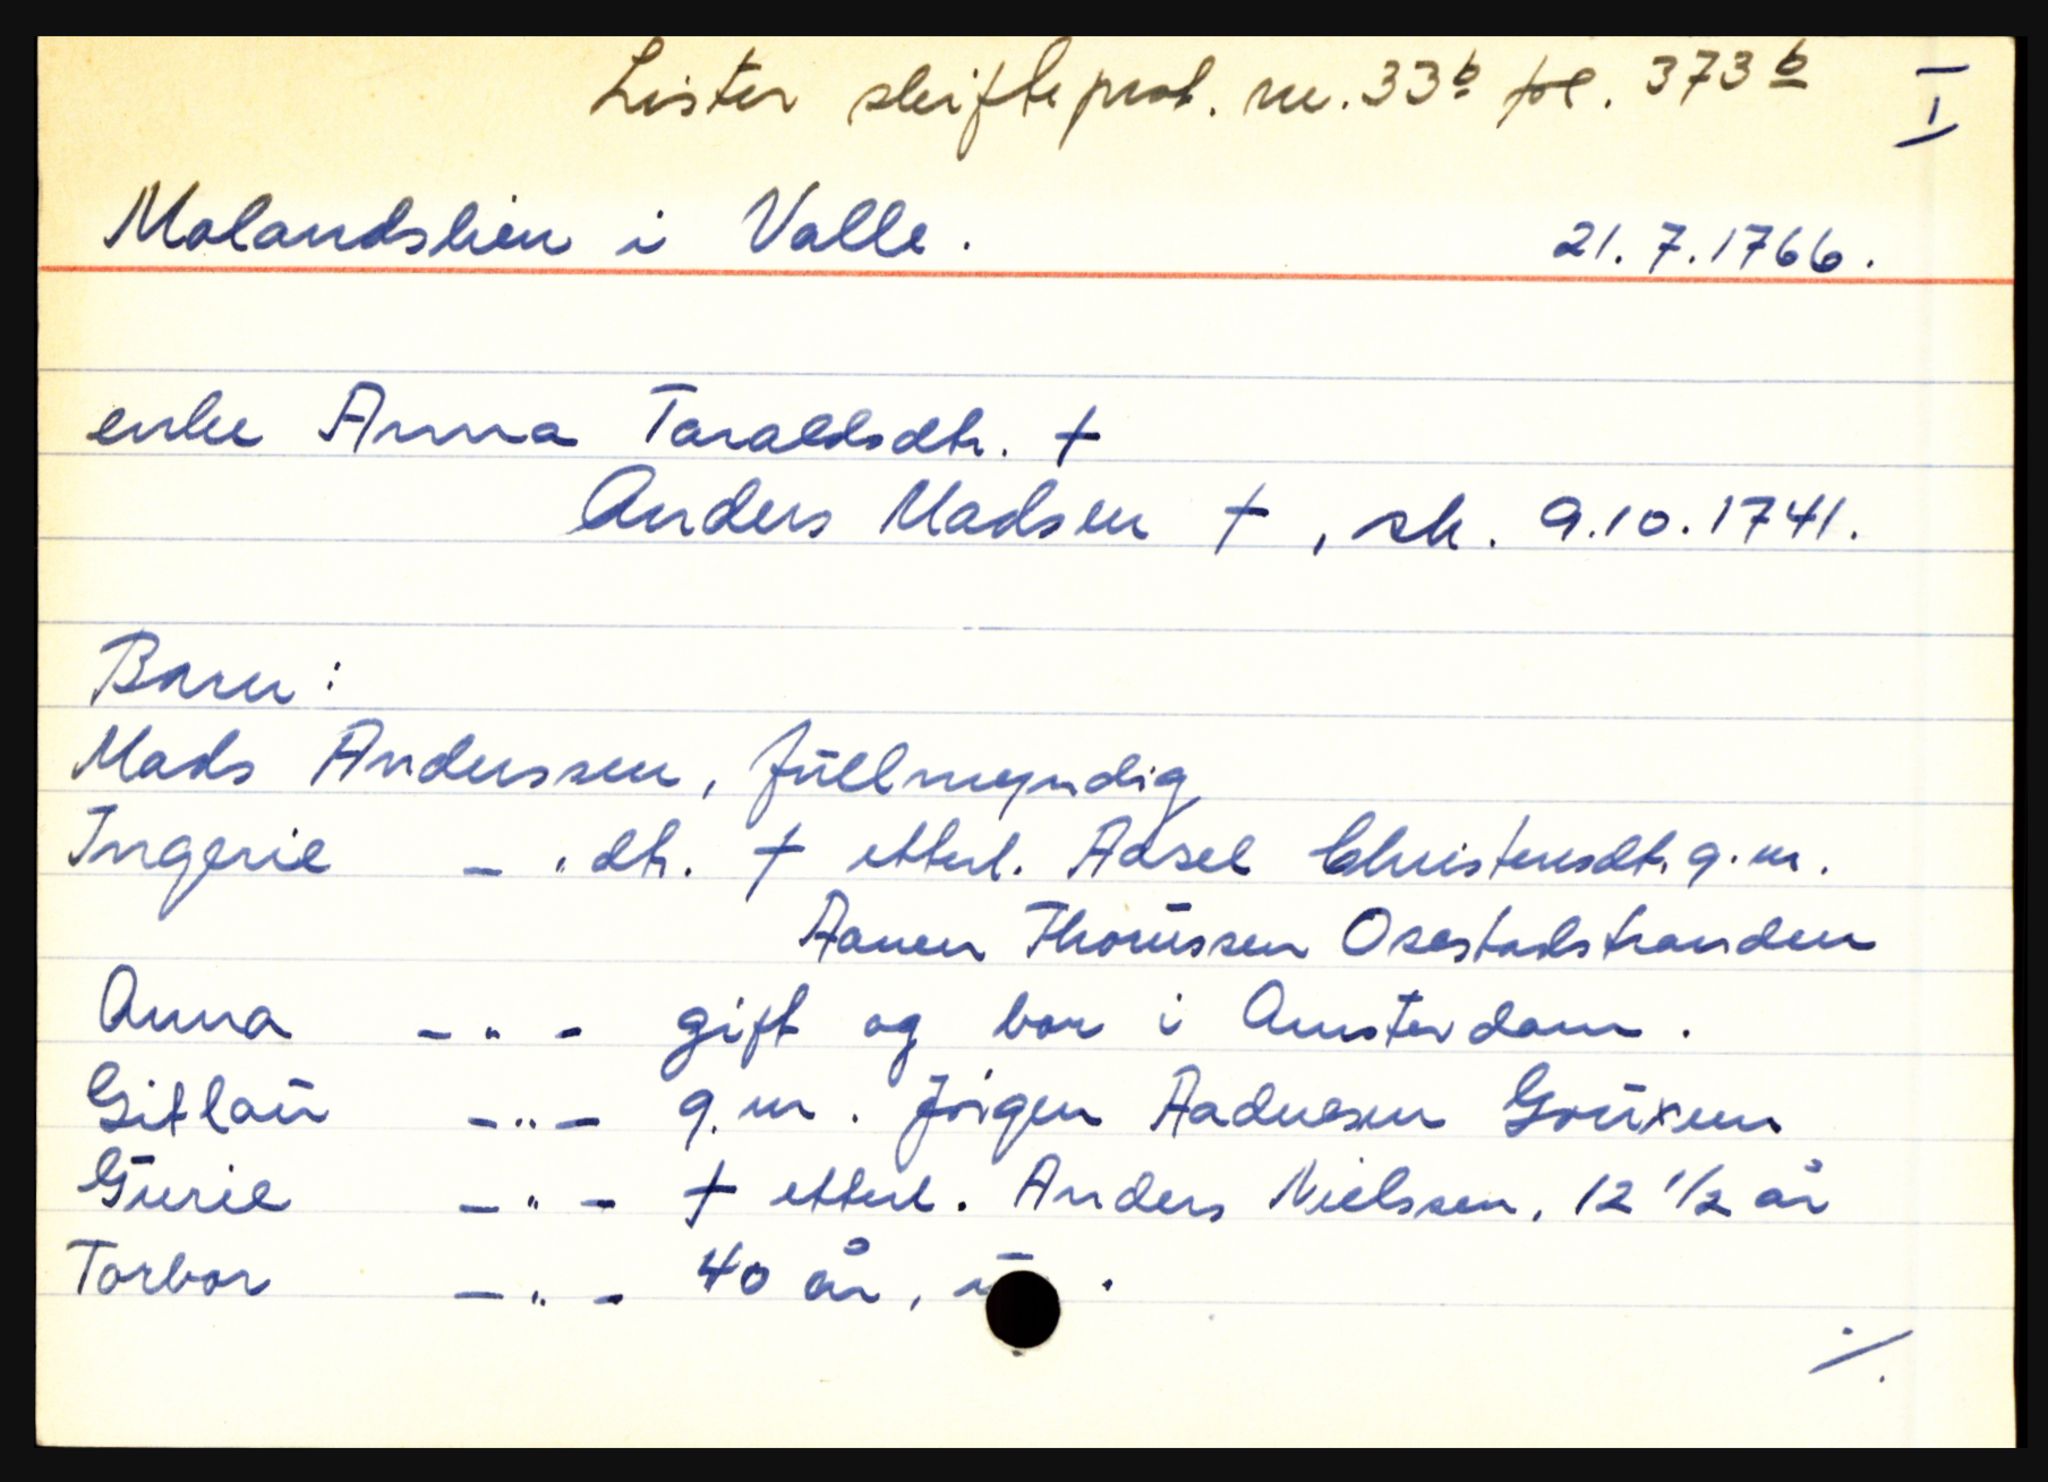 Lister skifteprot. nr. 33b fol. 373b I
Molandslien i Valle. 21.7.1766.
enke Anna Taraldsdtr. †
Anders Madsen †, sk. 9.10.1741.
Barn:
Mads Anderssen, fullmyndig
Ingerie – " dtr. † etterl. Adsel Christensdtr. g.m.
Aanen Thorussen Osestadstranden
Anna – " – gift og bor i Amsterdam.
Gitlau – " – g.m. Jörgen Aadnesen
Gurie – " – † etterl. Anders Nielssen, 12 1/2 år
Torbor – " – 40 år,
./.